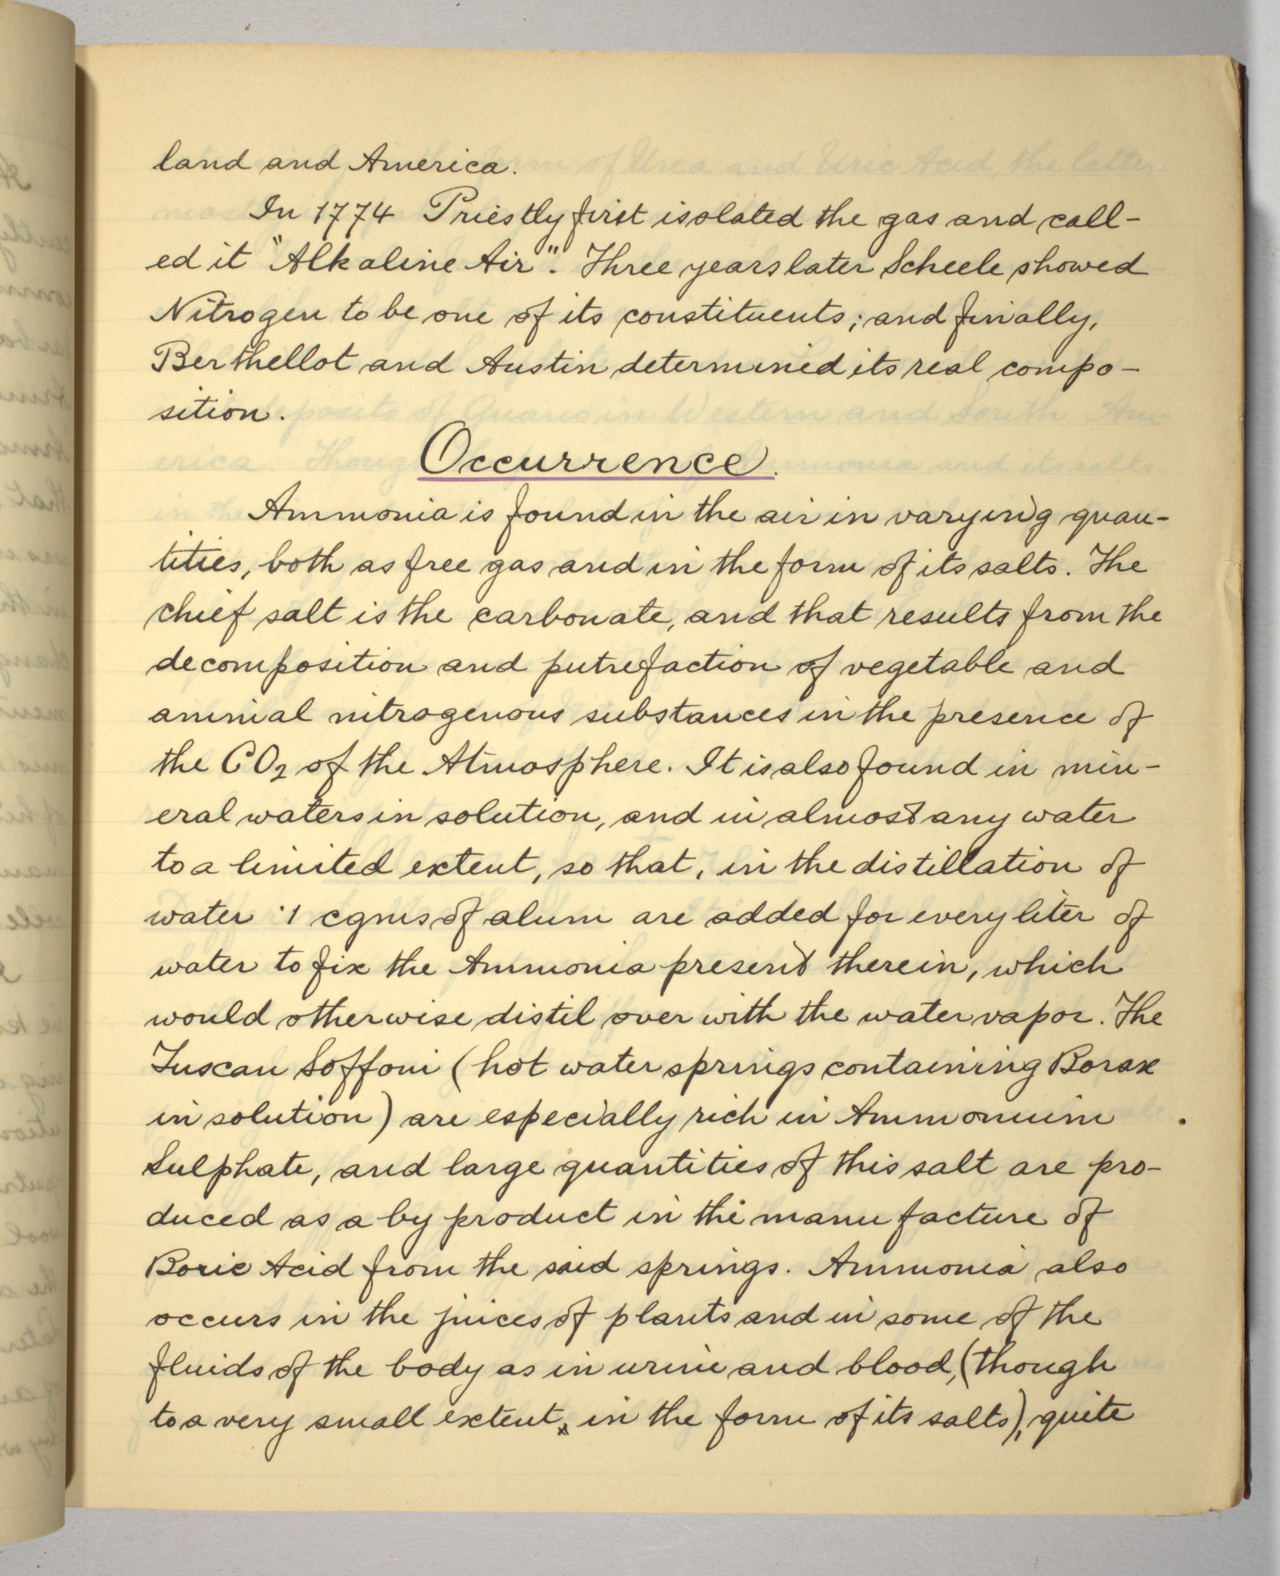 land and America.
In 1774 Priestly first isolated the gas and call-
ed it "Alkaline Air". Three years later Scheele showed
Nitrogen to be one of its constituents; and finally,
Berthellot and Austin determined its real compo-
sition.
Occurrence.
Ammonia is found in the air in varying quan-
tities, both as free gas and in the form of its salts. The
chief salt is the carbonate, and that results from the
decomposition and putrefaction of vegetable and
animal nitrogenous substances in the presence of
the CO2 of the Atmosphere. It is also found in min-
eral waters in solution, and in almost any water
to a limited extent, so that, in the distillation of
water .1 cgms of alum are added for every liter of
water to fix the Ammonia present therein, which
would otherwise distil over with the water vapor. The
Tuscan Soffoni (hot water springs containing Borax
in solution) are especially rich in Ammonium
Sulphate, and large quantities of this salt are pro-
duced as a by product in the manufacture of
Boric Acid from the said springs. Ammonia also
occurs in the juices of plants and in some of the
fluids of the body as in urine and blood, (though
to a very small extent, in the form of its salts), quite